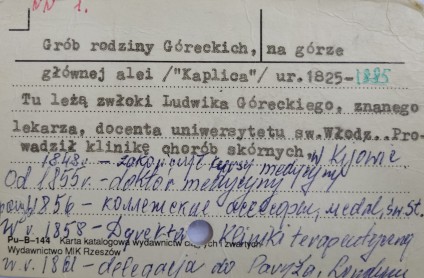 NN 1.
Grób rodziny Góreckich, na górze
głównej alei /"Kaplica"/ ur. 1825-1885
Tu leżą zwłoki Ludwika Góreckiego, znanego
lekarza, docenta uniwersytetu sw.Włodz..Pro-
wadził klinikę chorób skórnych w Kijowie
1848r. - zakończył kursy medycyny
Od 1855r. - doktor medycyny
1856 - коллежский асессор, medal św. St.
W r. 1858 - Dyrektor Kliniki terapeutycznej
Pu-B-144 Karta katalogowa wydawnictw zwartych
Wydawnictwo MiK Rzeszów
w r. 1861 - delegacja do Paryża, Londynu